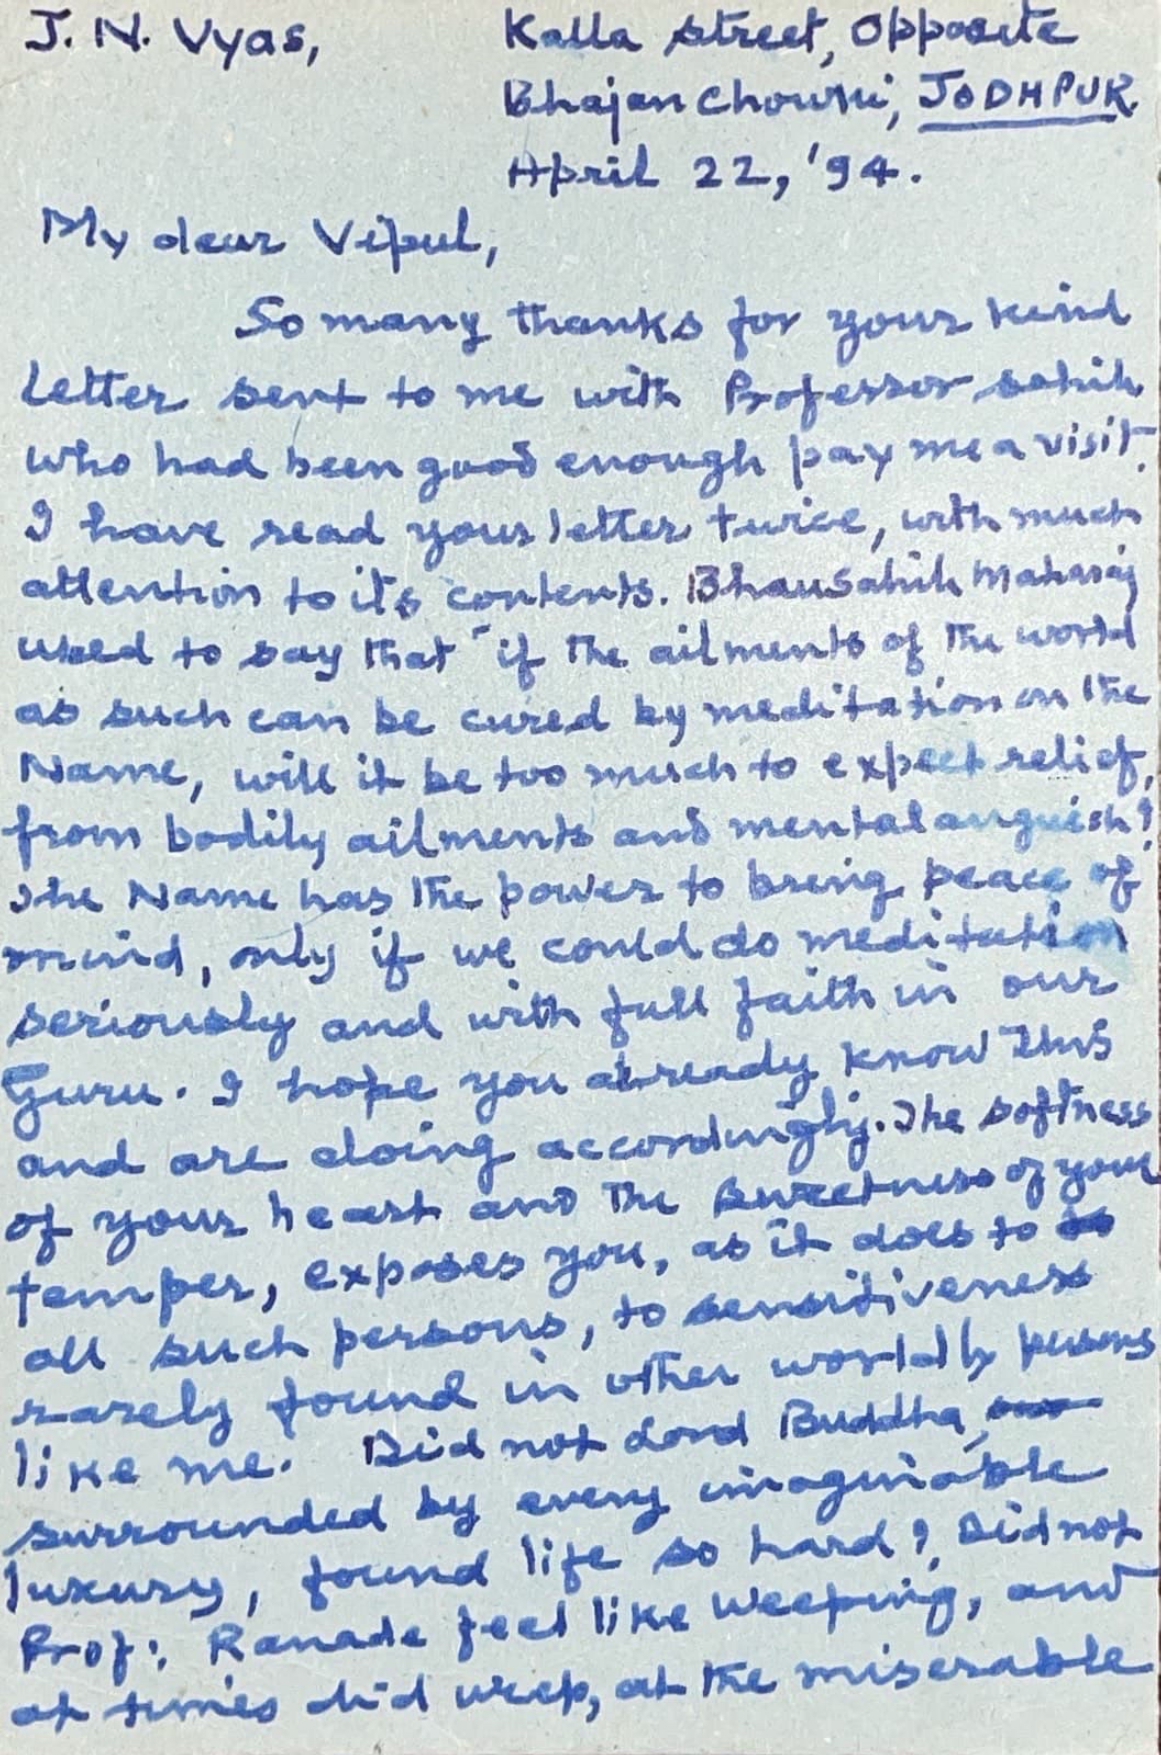 J. N. Vyas,
Kalla Street, Opposite
Bhajan Chowki, JODHPUR.
April 22, '94.
My dear Vipul,
So many thanks for your kind
letter sent to me with Professor Sahib
who had been good enough pay me a visit.
I have read your letter twice, with much
attention to its contents. Bhausahib Maharaj
used to say that "if the ailments of the world
as such can be cured by meditation on the
Name, will it be too much to expect relief,
from bodily ailments and mental anguish?
The Name has the power to bring peace of
mind, only if we could do meditation
seriously and with full faith in our
Guru. I hope you already know this
and are doing accordingly. The softness
of your heart and the sweetness of your
temper, exposes you, as it does to
all such persons, to sensitiveness
rarely found in other worldly persons
like me. Did not Lord Buddha,
surrounded by every imaginable
luxury, found life so hard? Did not
Prof: Ranade feel like weeping, and
at times did weep, at the miserable